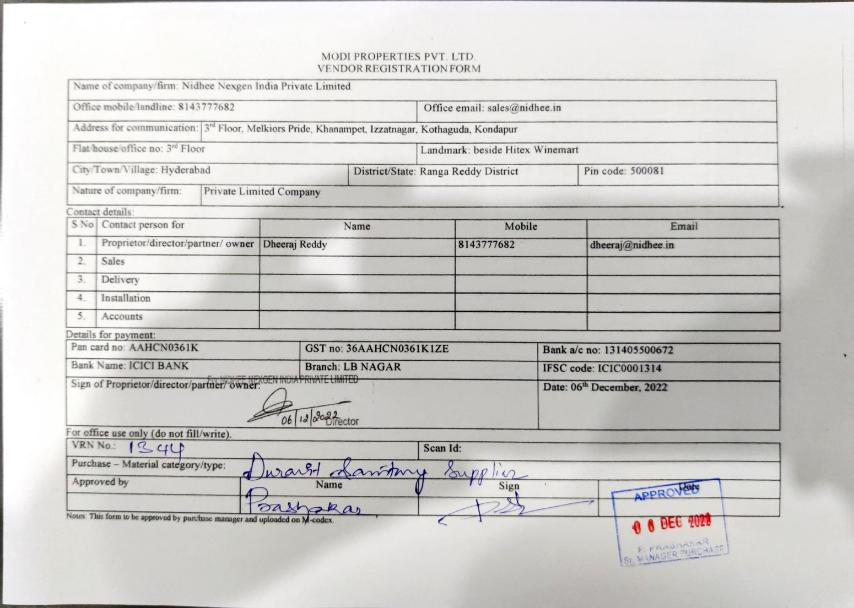 MODI PROPERTIES PVT. LTD.
VENDOR REGISTRATION FORM
Name of company/firm: Nidhee Nexgen India Private Limited
Office mobile/landline: 8143777682 Office email: sales@nidhee.in
Address for communication: 3rd Floor, Melkiors Pride, Khanampet, Izzatnagar, Kothaguda, Kondapur
Flat/house/office no: 3rd Floor Landmark: beside Hitex Winemart
City/Town/Village: Hyderabad District/State: Ranga Reddy District Pin code: 500081
Nature of company/firm: Private Limited Company
Contact details:
S No Contact person for Name Mobile Email
1. Proprietor/director/partner/ owner Dheeraj Reddy 8143777682 dheeraj@nidhee.in
2. Sales
3. Delivery
4. Installation
5. Accounts
Details for payment:
Pan card no: AAHCN0361K GST no: 36AAHCN0361K1ZE Bank a/c no: 131405500672
Bank Name: ICICI BANK Branch: LB NAGAR IFSC code: ICIC0001314
For NIDHEE NEXGEN INDIA PRIVATE LIMITED
Sign of Proprietor/director/partner/ owner: Date: 06th December, 2022
06/12/2022 Director
For office use only (do not fill/write).
VRN No.: 1344 Scan Id:
Purchase – Material category/type: Duravit Sanitary Supplier
Approved by Name Sign Date
Prabhakar
APPROVED
06 DEC 2022
P. PRABHAKAR
Sr. MANAGER PURCHASE
Notes: This form to be approved by purchase manager and uploaded on M-codex.